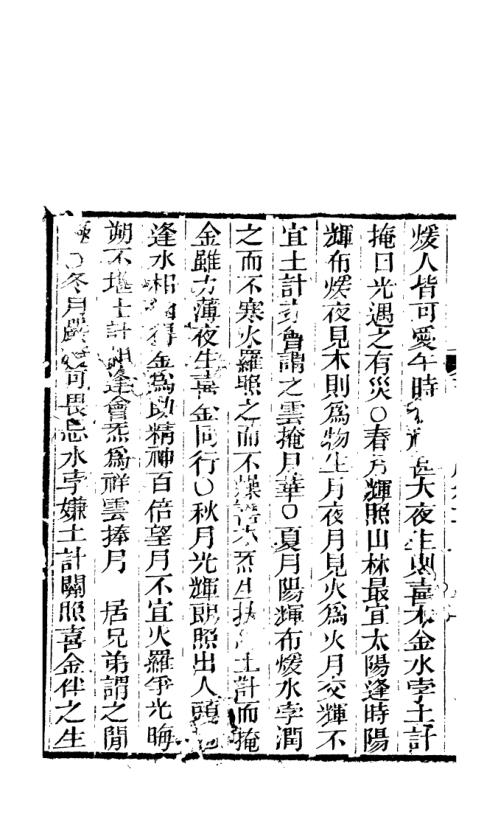 煖人皆可愛午時大夜生則喜木金水孛土計
掩日光遇之有災〇春方輝照山林最宜太陽逢時陽
輝布煖夜見木則爲物生月夜月見火爲火月交輝不
宜土計會謂之雲掩月華〇夏月陽輝布煖水孛潤
之而不寒火羅照之而不木炁生土計而掩
金雖力薄夜生喜金同行〇秋月光輝照出人頭
逢水相得金爲助精神百倍望月不宜火羅爭光晦
朔不堪土計相逢會炁爲祥雲捧月 居兄弟謂之閒
〇冬月嚴可畏忌水孛嫌土計關照喜金伴之生